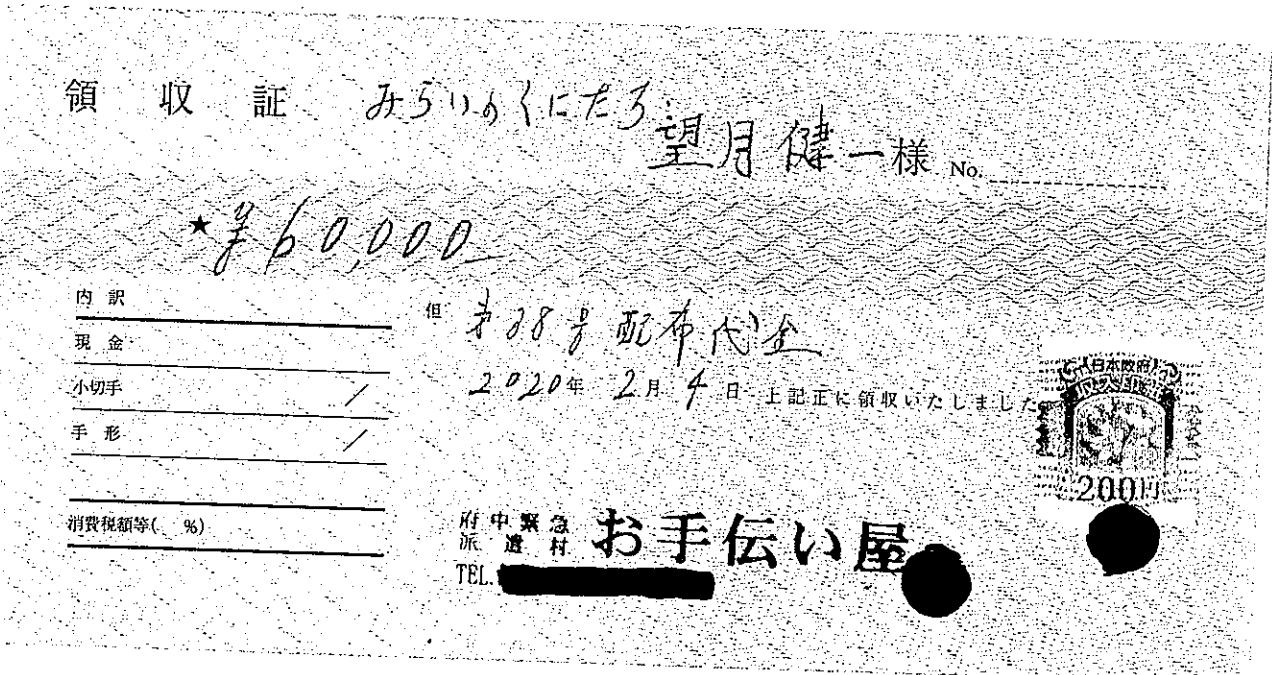 領 収 証 みらいのくにたち
望月健一様 No.
★ ¥60,000
内 訳
現 金
小切手
手 形
消費税額等( %)
但 第38号配布代金
2020年 2月 4日 上記正に領収いたしました
日本政府
200円
府中緊急
派遣村
お手伝い屋
TEL.